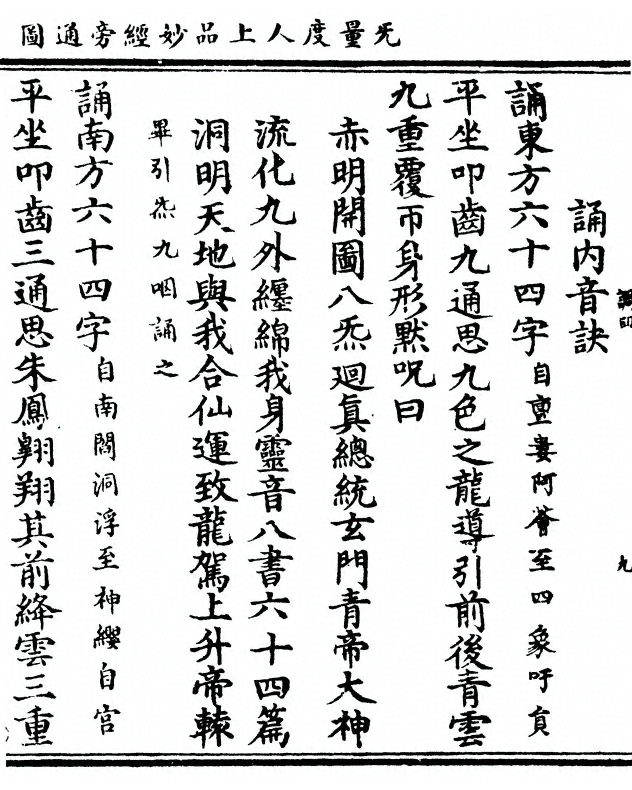 圖通旁經妙品上人度量旡
誦內音訣
誦東方六十四字自亶婁阿薈至四象吁員
平坐叩齒九通思九色之龍導引前後青雲
九重覆帀身形默呪曰
赤明開圖八炁廻眞總統玄門青帝大神
流化九外纏綿我身靈音八書六十四篇
洞明天地與我合仙運致龍駕上升帝轅
畢引炁九咽誦之
誦南方六十四字自南閻洞浮至神纓自宮
平坐叩齒三通思朱鳳翱翔其前絳雲三重